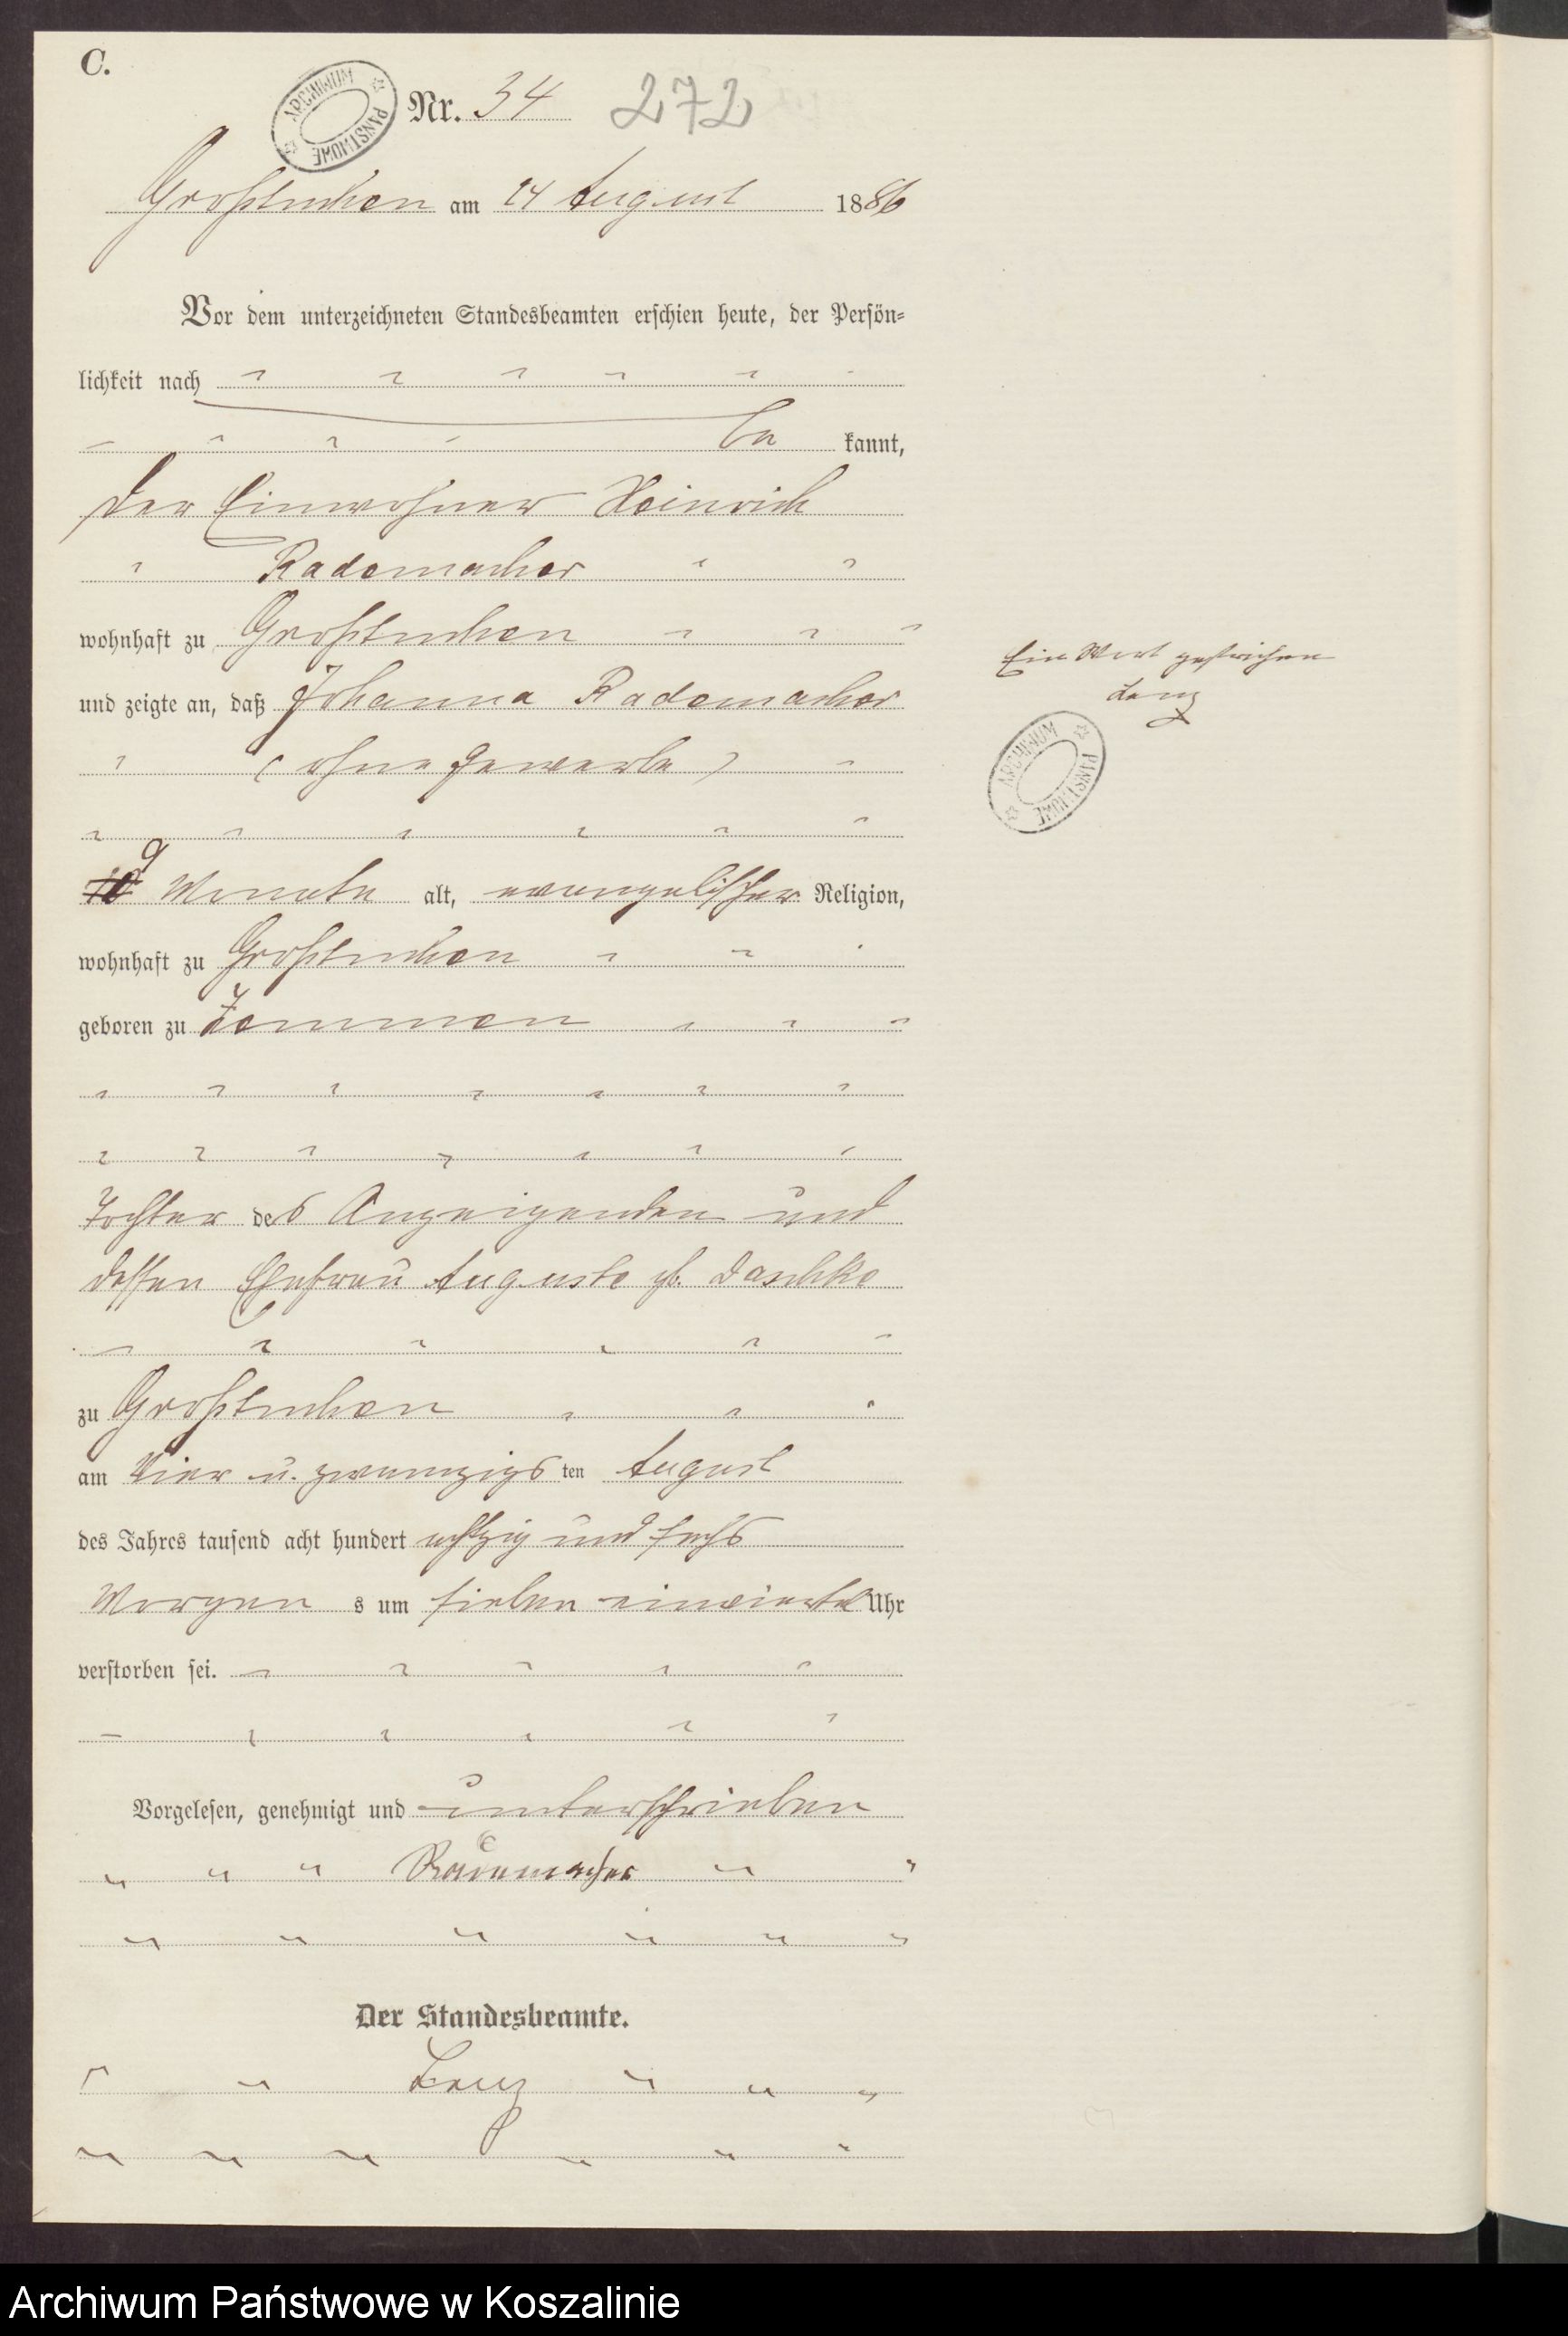 C.
ARCHIWUM PAŃSTWOWE
Nr. 34 272
Großtuchen am 24 August 1886
Vor dem unterzeichneten Standesbeamten erschien heute, der Persön-
lichkeit nach
be kannt,
der Einwohner Heinrich
Rademacher
wohnhaft zu Großtuchen
und zeigte an, daß Johanna Rademacher
(ohne Gewerbe)
9
10 Monate alt, evangelischer Religion,
wohnhaft zu Großtuchen
geboren zu Zemmen
Tochter des Anzeigenden und
dessen Ehefrau Auguste gb. Daschke
zu Großtuchen
am vier u. zwanzigs ten August
des Jahres tausend acht hundert achtzig und sechs
Morgen s um sieben einviertel Uhr
verstorben sei.
Vorgelesen, genehmigt und unterschrieben
Rademacher
Der Standesbeamte.
Lenz
Ein Wort gestrichen
Lenz
ARCHIWUM PAŃSTWOWE
Archiwum Państwowe w Koszalinie